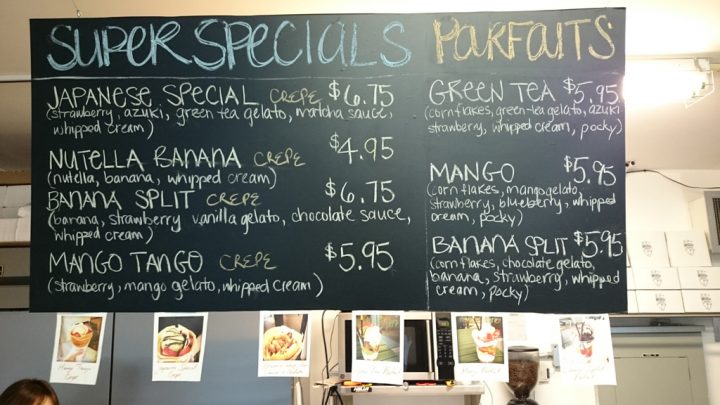 SUPER SPECIALS
JAPANESE SPECIAL CREPE $6.75
(strawberry, azuki, green tea gelato, matcha sauce,
whipped cream)
NUTELLA BANANA CREPE $4.95
(nutella, banana, whipped cream)
BANANA SPLIT CREPE $6.75
(banana, strawberry vanilla gelato, chocolate sauce,
whipped cream)
MANGO TANGO CREPE $5.95
(strawberry, mango gelato, whipped cream)
PARFAITS
GREEN TEA $5.95
(cornflakes, green-tea gelato, azuki
strawberry, whipped cream, pocky)
MANGO $5.95
(corn flakes, mango gelato,
strawberry, blueberry, whipped
cream, pocky)
BANANA SPLIT $5.95
(corn flakes, chocolate gelato,
banana, strawberry, whipped
cream, pocky)
Mango Tango
Crepe
Japanese Special
Crepe